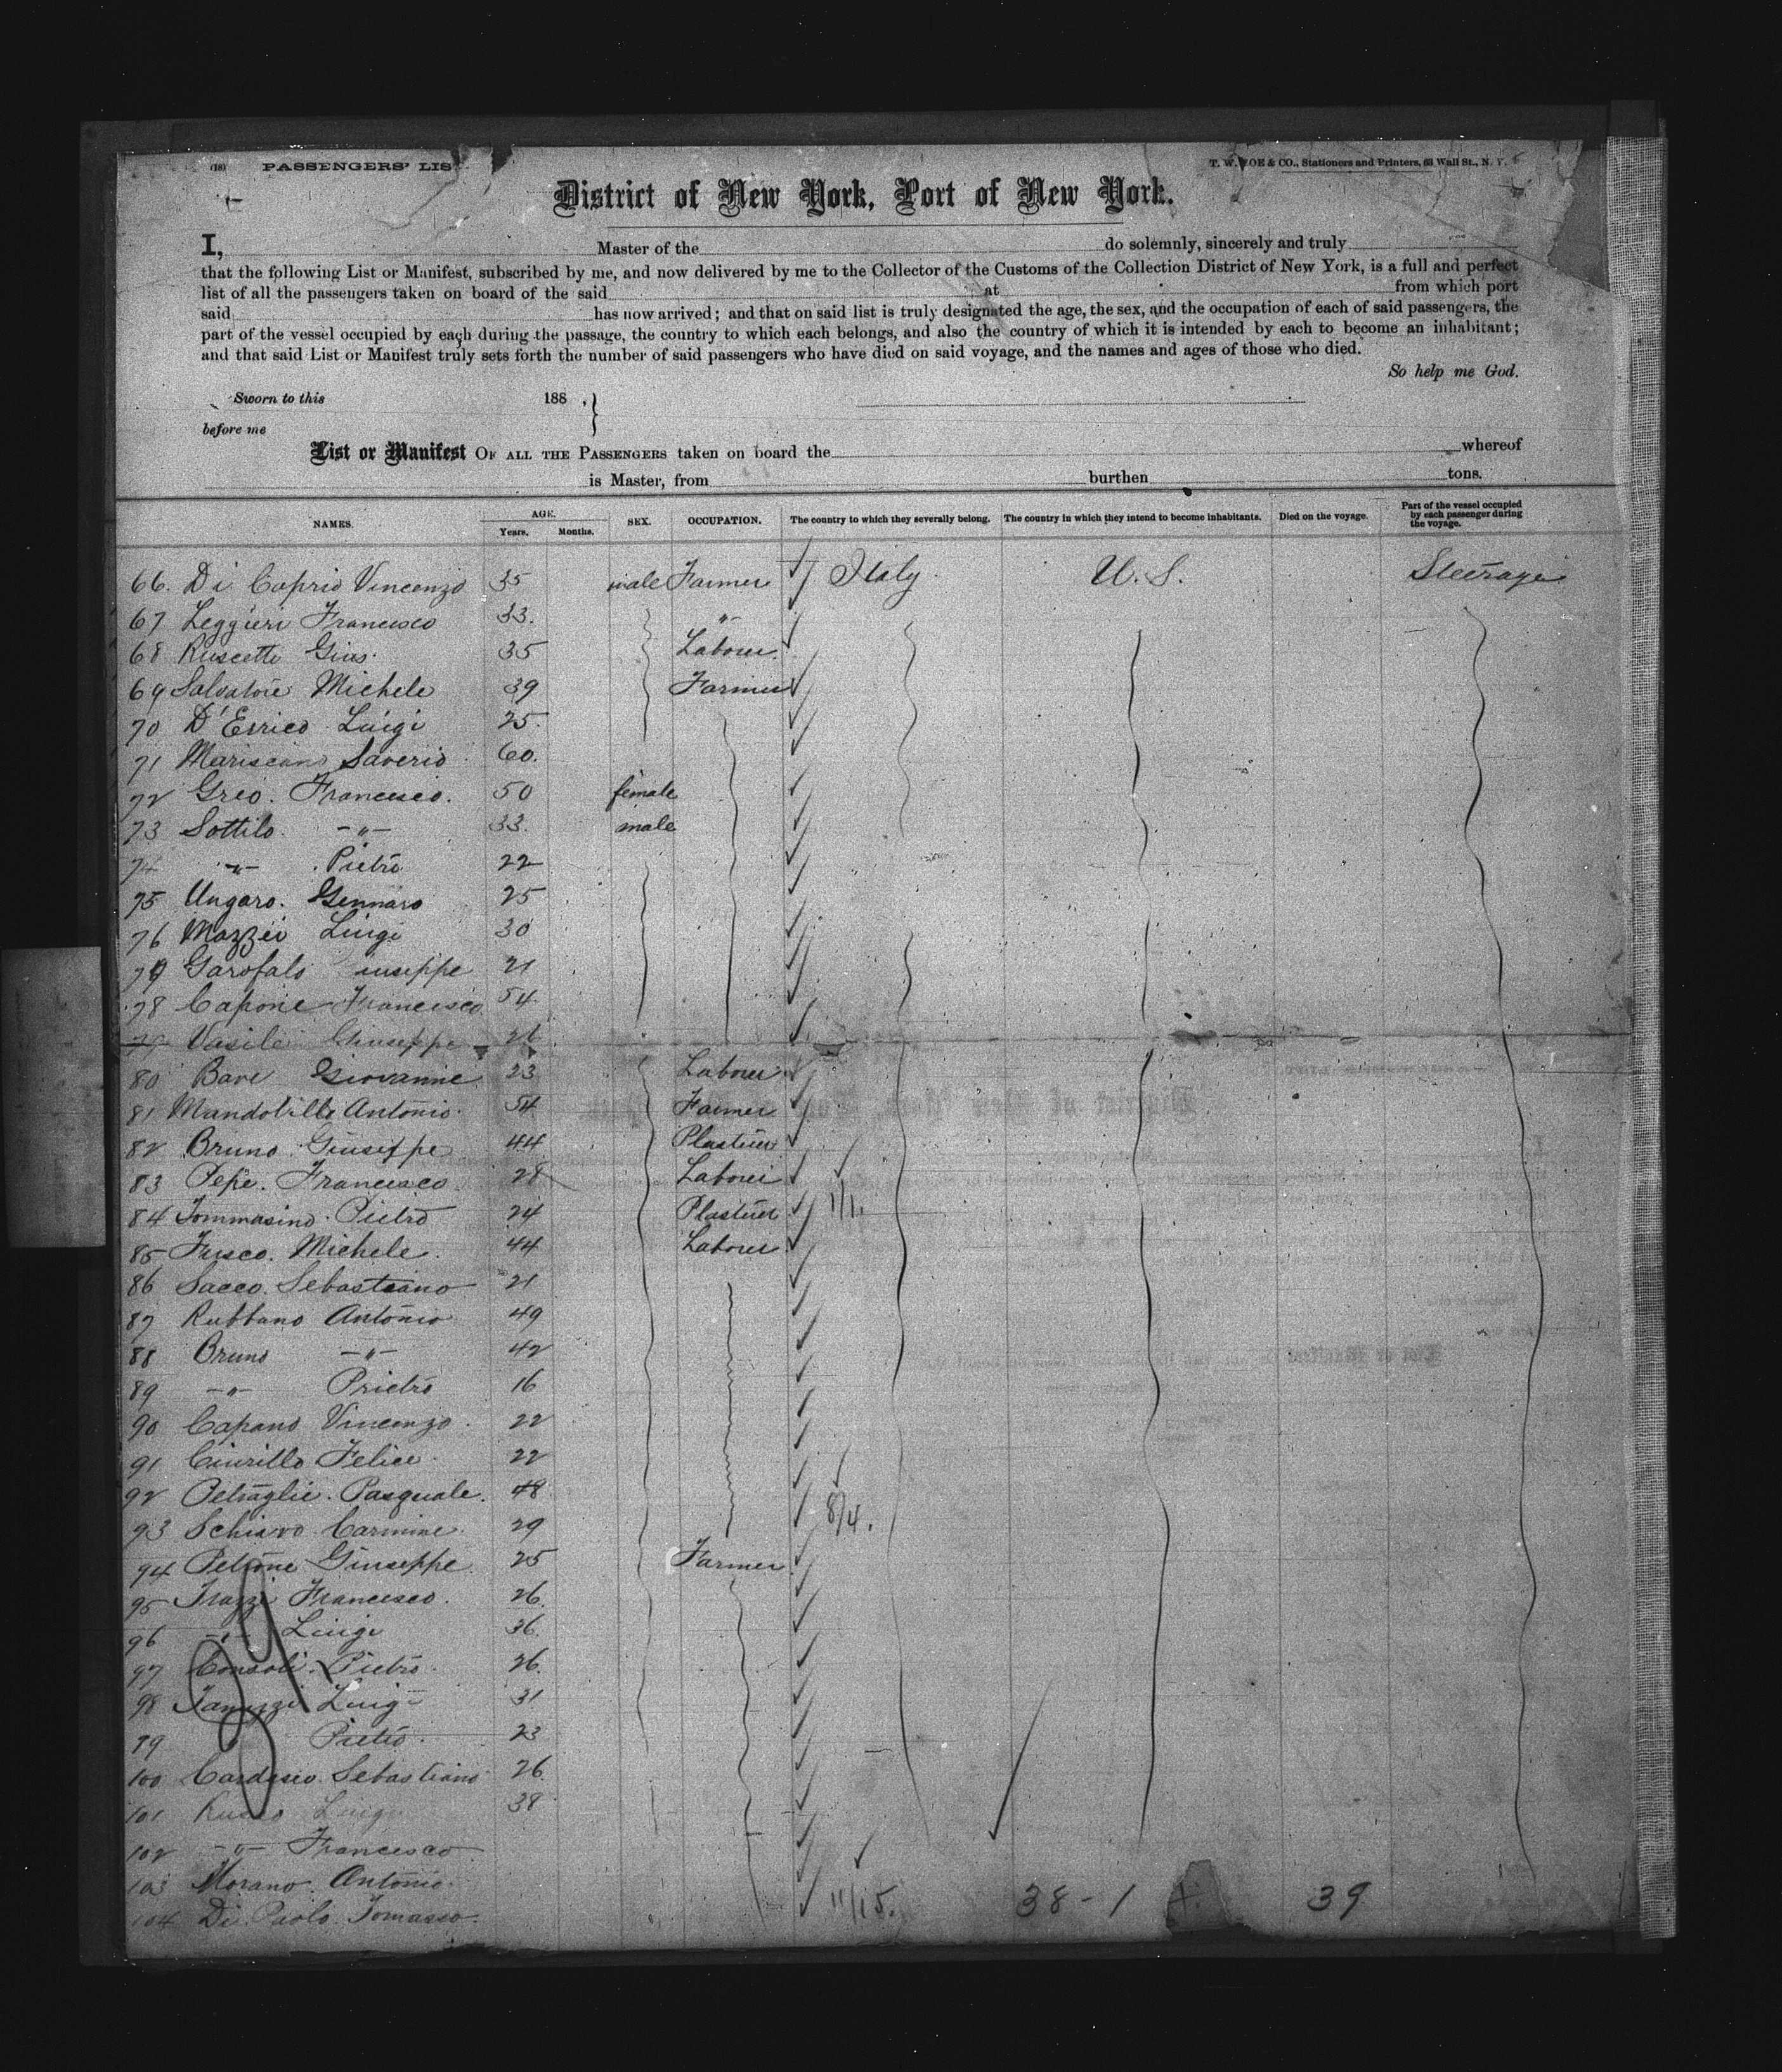 (18) PASSENGERS' LIS
T. W. ROE & CO., Stationers and Printers, 63 Wall St., N. Y.
District of New York, Port of New York.
I, Master of the do solemnly, sincerely and truly
that the following List or Manifest, subscribed by me, and now delivered by me to the Collector of the Customs of the Collection District of New York, is a full and perfect
list of all the passengers taken on board of the said at from which port
said has now arrived; and that on said list is truly designated the age, the sex, and the occupation of each of said passengers, the
part of the vessel occupied by each during the passage, the country to which each belongs, and also the country of which it is intended by each to become an inhabitant;
and that said List or Manifest truly sets forth the number of said passengers who have died on said voyage, and the names and ages of those who died.
So help me God.
Sworn to this 188 , }
before me
List or Manifest OF ALL THE PASSENGERS taken on board the whereof
is Master, from burthen tons.
NAMES. AGE. Years. Months. SEX. OCCUPATION. The country to which they severally belong. The country in which they intend to become inhabitants. Died on the voyage. Part of the vessel occupied by each passenger during the voyage.
66. Di Caprio Vincenzo 35 male Farmer Italy U. S. Steerage
67 Leggieri Francesco 33. -"-
68 Ruscetti Gius. 35 Labourer
69 Salvatore Michele 39 Farmer
70 D'Errico Luigi 25.
71 Mariscano Saverio 60.
72 Greo. Francesco. 50 female
73 Sottilo. -"- 33. male
74 -"- Pietro 22
75 Ungaro. Gennaro 25
76 Mazzei Luigi 30
77 Garofalo iuseppe 21
78 Capone Francesco 54
79 Vasile Giuseppe 26
80 Bave Giovanni 23 Labourer
81 Antonio. 54 Farmer
82 Bruno Giuseppe 44 Plasterer
83 Pepe. Francesco 28 Labourer
84 Tommasino Pietro 24 Plasterer 1/1.
85 Fusco. Michele. 44 Labourer
86 Sacco. Sebastiano 21
87 Rubbano Antonio 49
88 Bruno -"- 42
89 -"- Prietro 16
90 Capano Vincenzo. 22
91 Ciurillo Felice. 22
92 Petraglie. Pasquale. 48
93 Schiavo Carmine 29 8/4.
94 Petrone Giuseppe 25 Farmer
95 Francesco. 26.
96 -"- Luigi 36.
97 Consoli. Pietro. 26.
98 Ianuzzi Luigi 31
99 Pietro. 23
100 Sebastiano 26.
101 Russo Luigi 38
102 -"- Francesco
103 Morano. Antonio.
104 Di Paolo. Tomasso. 11/15. 38 - 1 39